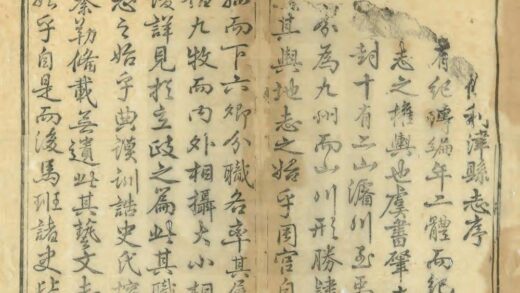 利津縣志序
有紀傳編年二體而紀
志之權輿也虞書肇
封十有二山濬川至
分為九州而山川形勝肄
其輿地志之始乎周官自
而下六卿分職各率其屬
九牧而內外相攝大小相
後詳見於立政之篇此其職
志之始乎典謨訓誥史氏
纂勒備載無遺此其藝文志
始乎自是而後馬班諸史皆